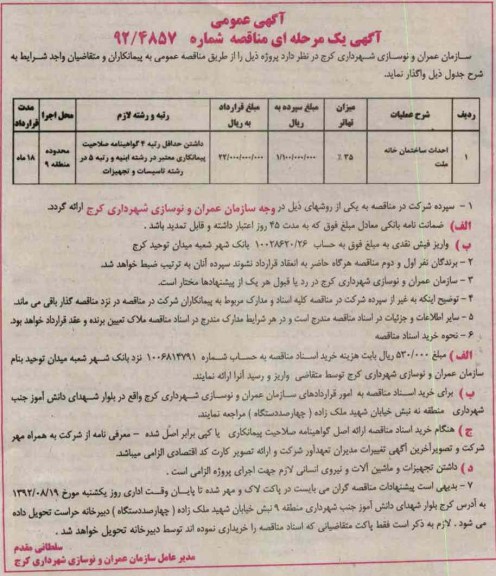 آگهی عمومی
آگهی یک مرحله ای مناقصه شماره ۹۲/۴۸۵۷
سازمان عمران و نوسازی شهرداری کرج در نظر دارد پروژه ذیل را از طریق مناقصه عمومی به پیمانکاران و متقاضیان واجد شرایط به
شرح جدول ذیل واگذار نماید.
ردیف شرح عملیات میزان تهاتر مبلغ سپرده به ریال مبلغ قرارداد به ریال رتبه و رشته لازم محل اجرا مدت قرارداد
۱ احداث ساختمان خانه ملت ۳۵ ٪ ۱/۱۰۰/۰۰۰/۰۰۰ ۲۲/۰۰۰/۰۰۰/۰۰۰ داشتن حداقل رتبه ۴ گواهینامه صلاحیت پیمانکاری معتبر در رشته ابنیه و رتبه ۵ در رشته تاسیسات و تجهیزات محدوده منطقه ۹ ۱۸ ماه
۱ – سپرده شرکت در مناقصه به یکی از روشهای ذیل در وجه سازمان عمران و نوسازی شهرداری کرج ارائه گردد.
الف) ضمانت نامه بانکی معادل مبلغ فوق که به مدت ۴۵ روز اعتبار داشته و قابل تمدید باشد .
ب) واریز فیش نقدی به مبلغ فوق به حساب ۱۰۰۲۸۶۲۰/۲۶ بانک شهر شعبه میدان توحید کرج
۲ – برندگان نفر اول و دوم مناقصه هرگاه حاضر به انعقاد قرارداد نشوند سپرده آنان به ترتیب ضبط خواهد شد.
۳ – سازمان عمران و نوسازی شهرداری کرج در رد یا قبول هر یک از پیشنهادها مختار است.
۴ – توضیح اینکه به غیر از سپرده شرکت در مناقصه کلیه اسناد و مدارک مربوط به پیمانکاران شرکت در مناقصه در نزد مناقصه گذار باقی می ماند.
۵ – سایر اطلاعات و جزئیات در اسناد مناقصه مندرج است و در هر شرایط مدارک مندرج در اسناد مناقصه ملاک تعیین برنده و عقد قرارداد خواهد بود.
۶ – نحوه خرید اسناد مناقصه
الف) مبلغ ۵۳۰/۰۰۰ ریال بابت هزینه خرید اسناد مناقصه به حساب شماره ۱۰۰۶۸۱۴۷۹۱ نزد بانک شهر شعبه میدان توحید بنام
سازمان عمران و نوسازی شهرداری کرج توسط متقاضی واریز و رسید آنرا ارائه نمایند.
ب) برای خرید اسناد مناقصه به امور قراردادهای سازمان عمران و نوسازی شهرداری کرج واقع در بلوار شهدای دانش آموز جنب
شهرداری منطقه نه نبش خیابان شهید ملک زاده ( چهارصددستگاه ) مراجعه نمایند.
ج) هنگام خرید اسناد مناقصه ارائه اصل گواهینامه صلاحیت پیمانکاری یا کپی برابر اصل شده – معرفی نامه از شرکت به همراه مهر
شرکت و تصویرآخرین آگهی تغییرات مدیران تعهدآور شرکت و ارائه تصویر کارت کد اقتصادی الزامی میباشد.
د) داشتن تجهیزات و ماشین آلات و نیروی انسانی لازم جهت اجرای پروژه الزامی است .
۷ – بدیهی است پیشنهادات مناقصه گران می بایست در پاکت لاک و مهر شده تا پایان وقت اداری روز یکشنبه مورخ ۱۳۹۲/۰۸/۱۹
به آدرس کرج بلوار شهدای دانش آموز جنب شهرداری منطقه ۹ نبش خیابان شهید ملک زاده ( چهارصددستگاه ) دبیرخانه حراست تحویل داده
می شود . لازم به ذکر است فقط پاکت متقاضیانی که اسناد مناقصه را خریداری نموده اند توسط دبیرخانه تحویل خواهد شد .
سلطانی مقدم
مدیر عامل سازمان عمران و نوسازی شهرداری کرج